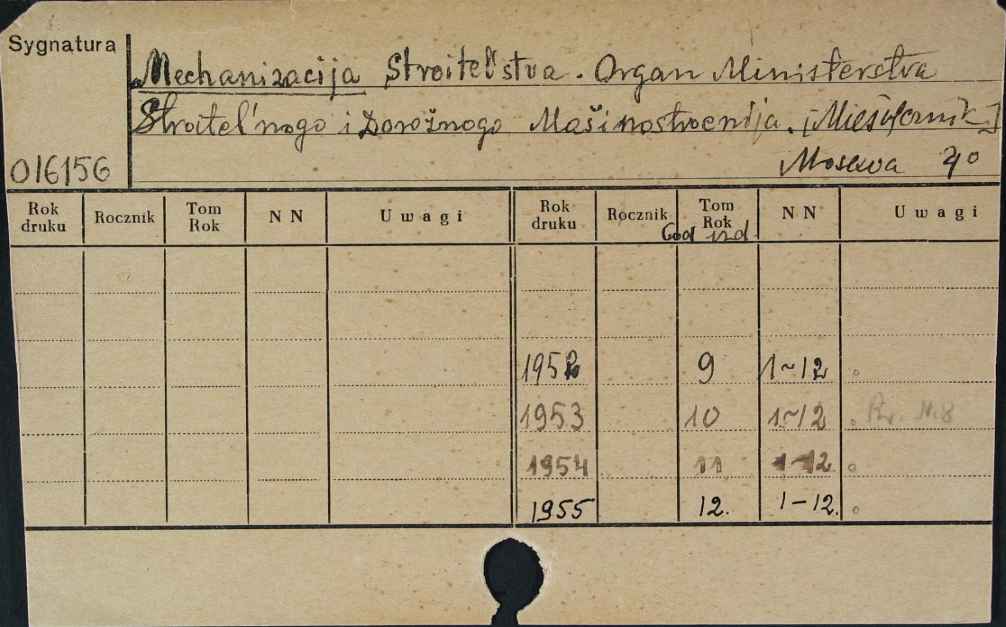 Sygnatura
Mechanizacija Stroitel'stva. Organ Ministerstva
Stroitel'nogo i Dorožnogo Mašinostroenija. [Miesięcznik]
016156
Moskva 4o
Rok druku Rocznik Tom Rok N N Uwagi Rok druku Rocznik Tom Rok N N Uwagi
God izd
1952 9 1~12
1953 10 1~12 N. 8
1954 11 1-12
1955 12. 1-12.